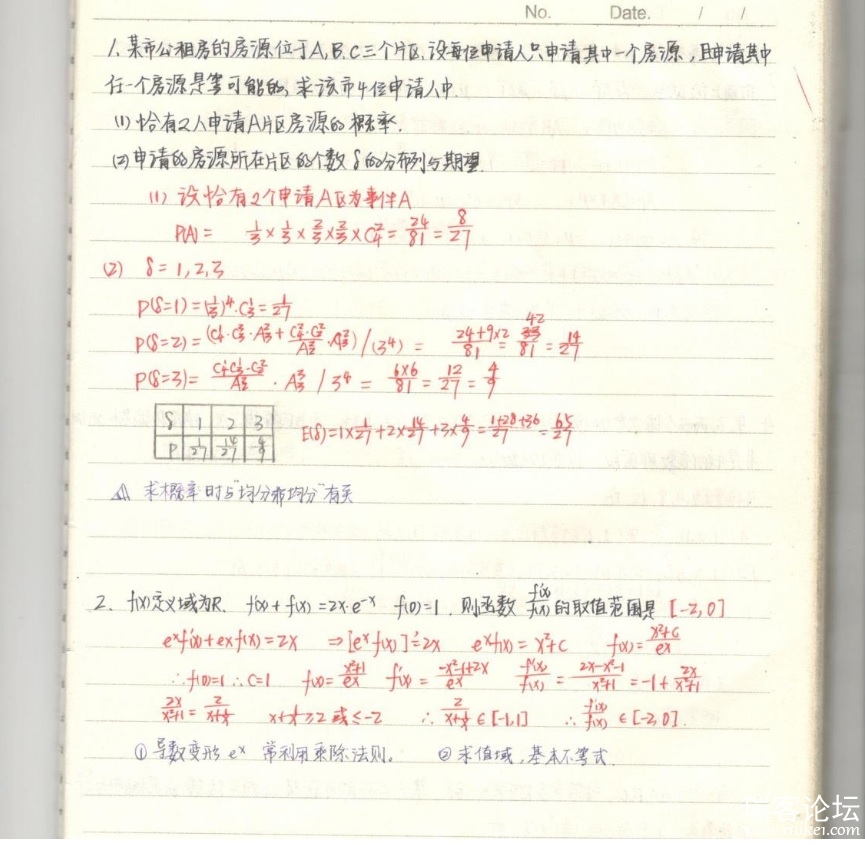 No. Date. / /
1. 某市公租房的房源位于A,B,C三个片区,设每位申请人只申请其中一个房源,且申请其中
任一个房源是等可能的,求该市4位申请人中.
(1) 恰有2人申请A片区房源的概率.
(2) 申请的房源所在片区的个数δ的分布列与期望.
(1) 设恰有2个申请A区为事件A
P(A) = 1/3 × 1/3 × 2/3 × 2/3 × C₄² = 24/81 = 8/27
(2) δ = 1,2,3
P(δ=1) = (1/3)⁴·C₃¹ = 1/27
P(δ=2) = /(3⁴) = 42/81 = 14/27
P(δ=3) = · A₃³ / 3⁴ = 6×6/81 = 12/27 = 4/9
δ 1 2 3
P 1/27 14/27 4/9
E(δ) = 1×1/27 + 2×14/27 + 3×4/9 = 1+28+36/27 = 65/27
求概率时与"均分非均分"有关
2. f(x)定义域为R. f'(x) + f(x) = 2x·e⁻ˣ f(0)=1. 则函数 f'(x)/f(x) 的取值范围是 [-2,0]
eˣf'(x) + eˣf(x) = 2x ⇒ [eˣf(x)]' = 2x eˣf(x) = x²+C f(x) = x²+C/eˣ
∴ f(0)=1 ∴ C=1 f(x) = x²+1/eˣ f'(x) = -x²-1+2x/eˣ f'(x)/f(x) = 2x-x²-1/x²+1 = -1 + 2x/x²+1
2x/x²+1 = 2/x+1/x x+1/x ≥ 2 或 ≤ -2 ∴ 2/x+1/x ∈ [-1,1] ∴ f'(x)/f(x) ∈ [-2,0].
① 导数变形 eˣ 常利用乘除法则. ② 求值域,基本不等式.
客论坛